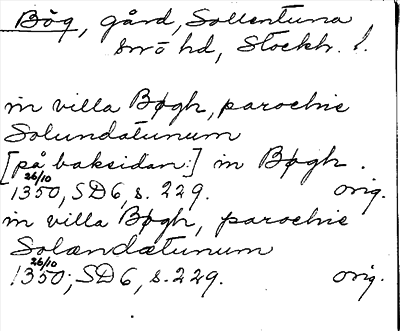 Bög, gård, Sollentuna
smö hd, Stockh. l.
in villa Bøgh, parochie
Solundatunum
[på baksidan:] in Bøgh.
26/10
1350, SD6, s. 229. orig.
in villa Bøgh, parochie
Solændætunum
26/10
1350, SD6, s. 229. orig.